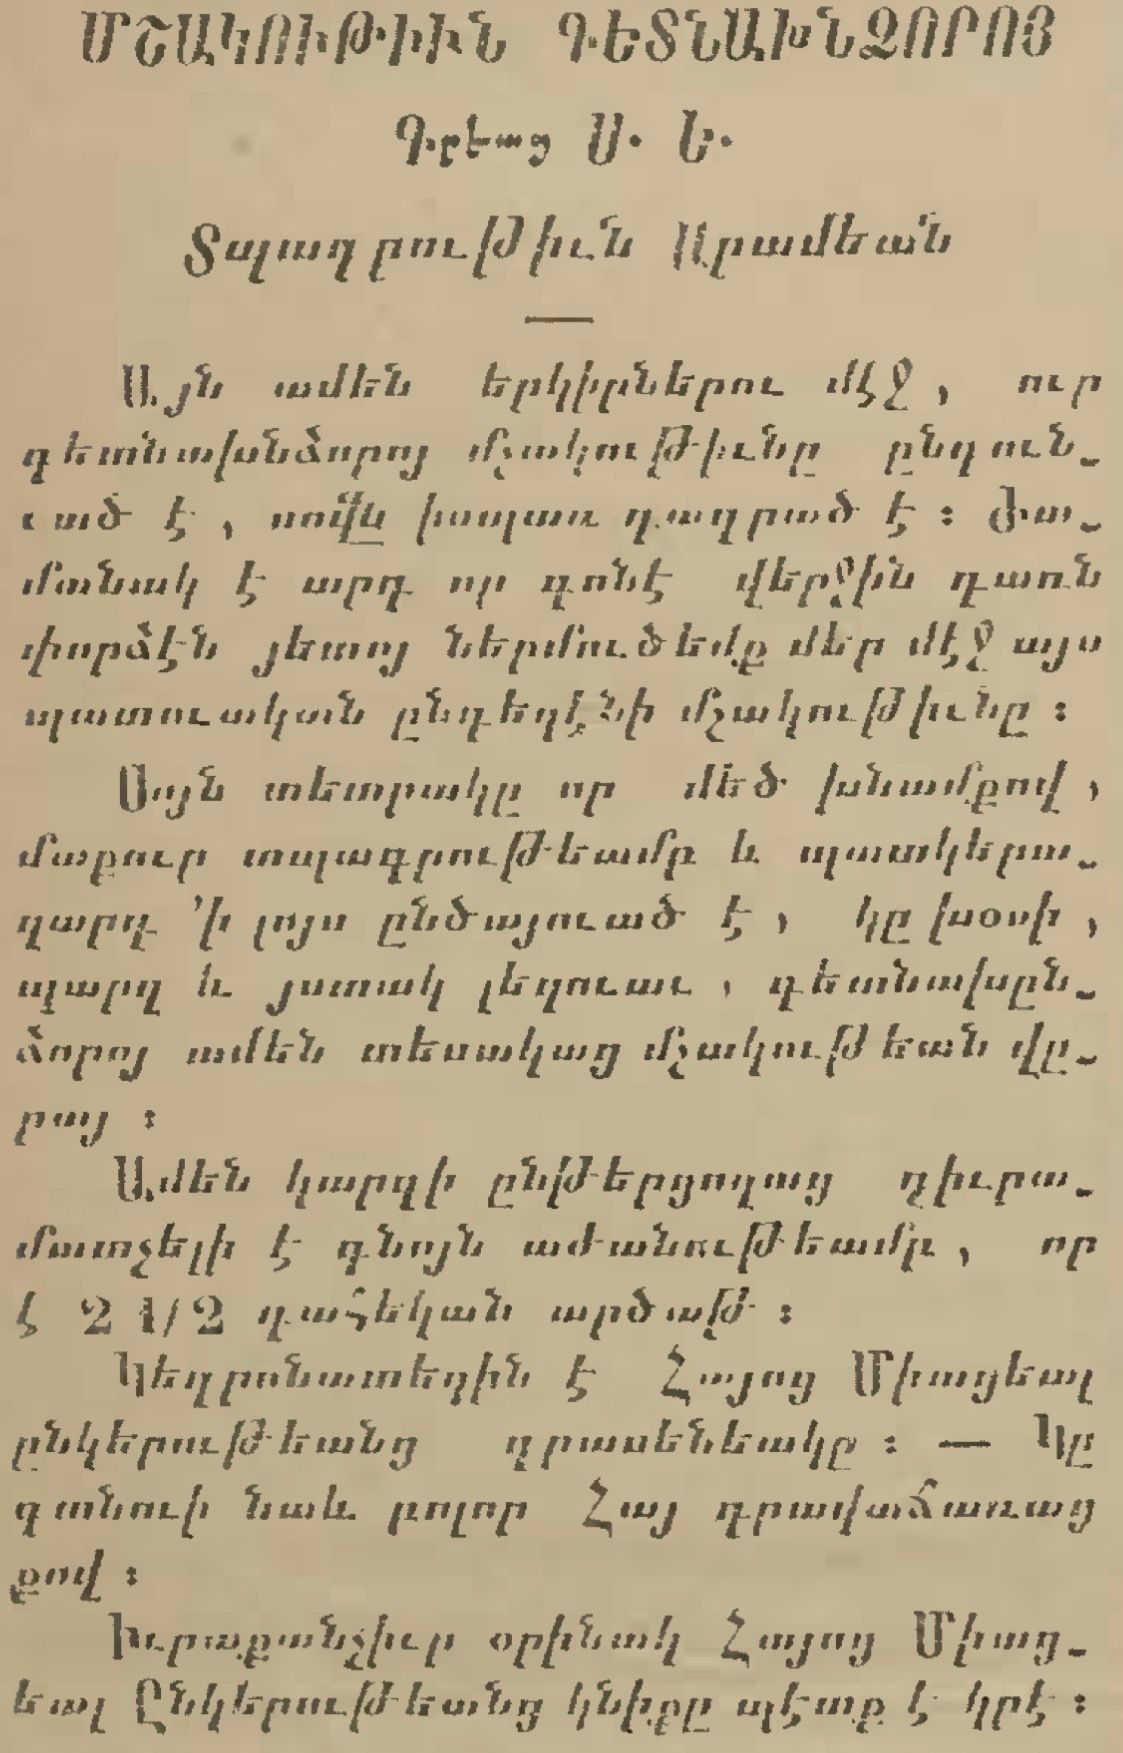 ՄՇԱԿՈՒԹԻՒՆ ԳԵՏՆԱԽՆՁՈՐՈՅ
Գրեաց Ս. Ն.
Տպագրութիւն Արամեան
Այն ամեն երկիրներու մէջ, ուր
գետնախնձորոյ մշակութիւնը ընդուն-
ւած է, սովն իսպառ դադրած է։ Ժա-
մանակ է արդ որ գոնէ վերջին դառն
փորձէն յետոյ ներմուծեմք մեր մէջ այս
պատուական ընդեղէնի մշակութիւնը։
Սոյն տետրակը որ մեծ խնամքով,
մաքուր տպագրութեամբ և պատկերա-
զարդ ՚ի լոյս ընծայուած է, կը խօսի,
պարզ և յստակ լեզուաւ, գետնախըն-
ձորոյ ամեն տեսակաց մշակութեան վը-
րայ։
Ամեն կարգի ընթերցողաց դիւրա-
մատչելի է գնոյն աժանութեամբ, որ
է 2 1/2 դահեկան արծաթ։
Կեդրոնատեղին է Հայոց Միացեալ
ընկերութեանց գրասենեակը։ — Կը
գտնուի նաև բոլոր Հայ գրավաճառաց
քով։
Իւրաքանչիւր օրինակ Հայոց Միաց-
եալ Ընկերութեանց կնիքը պէտք է կրէ։